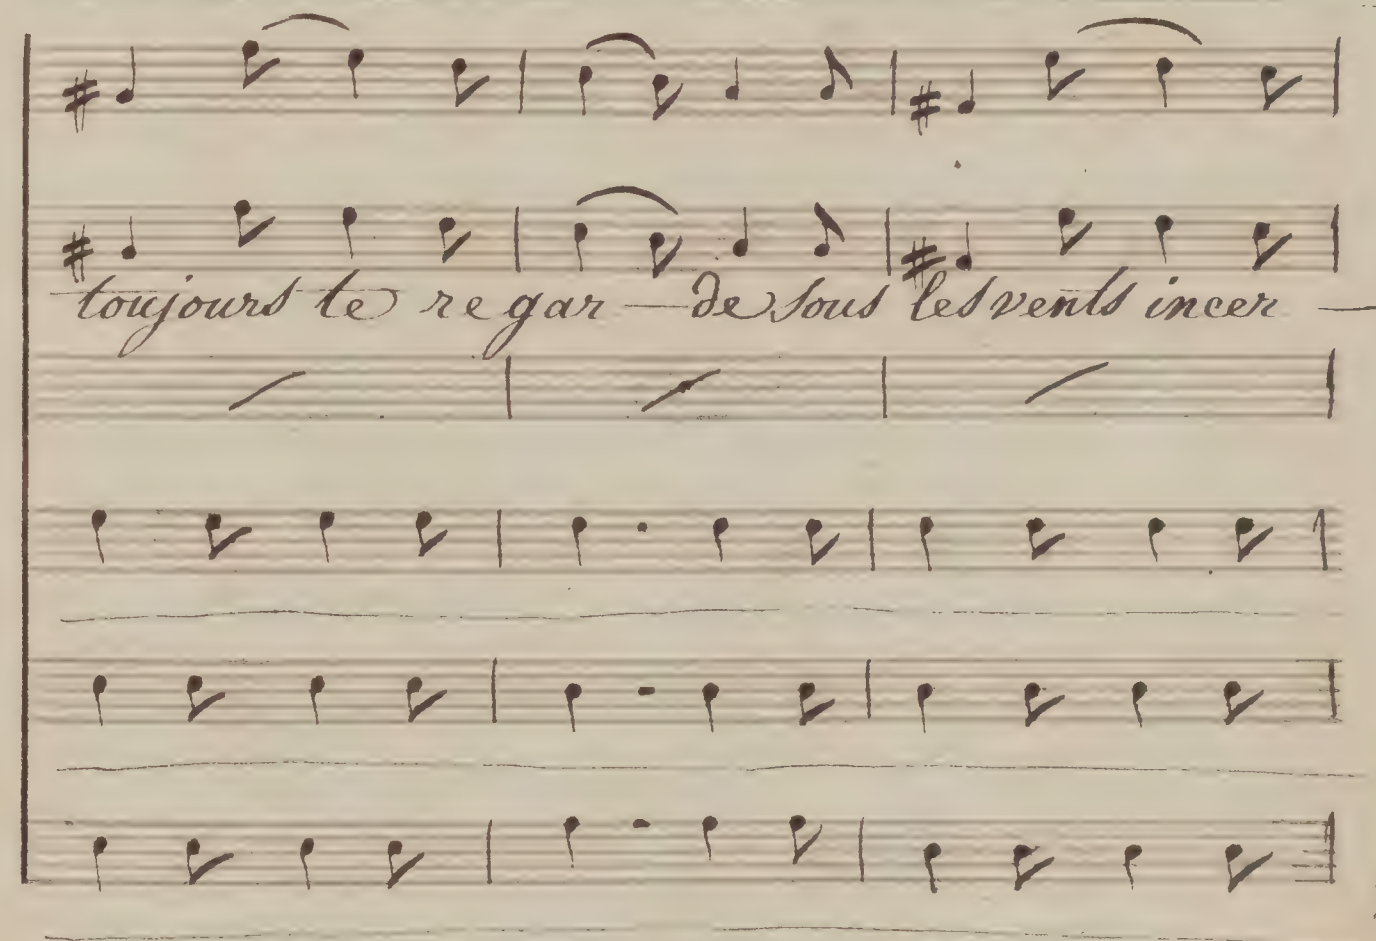 toujours te re gar — de sous les vents incer —